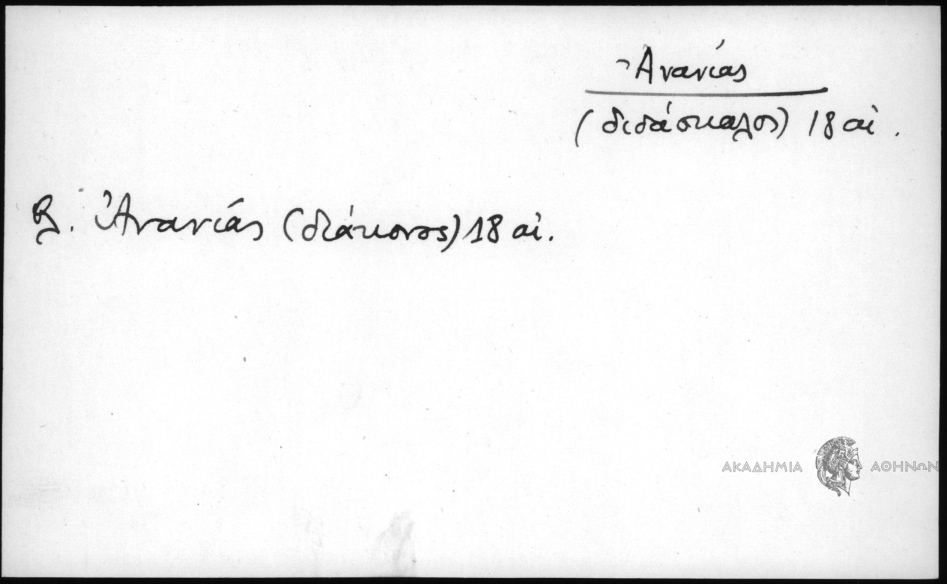 Ἀνανίας
(διδάσκαλος) 18 αἰ.
Βλ. Ἀνανίας (διάκονος) 18 αἰ.
ΑΚΑΔΗΜΙΑ ΑΘΗΝΩΝ